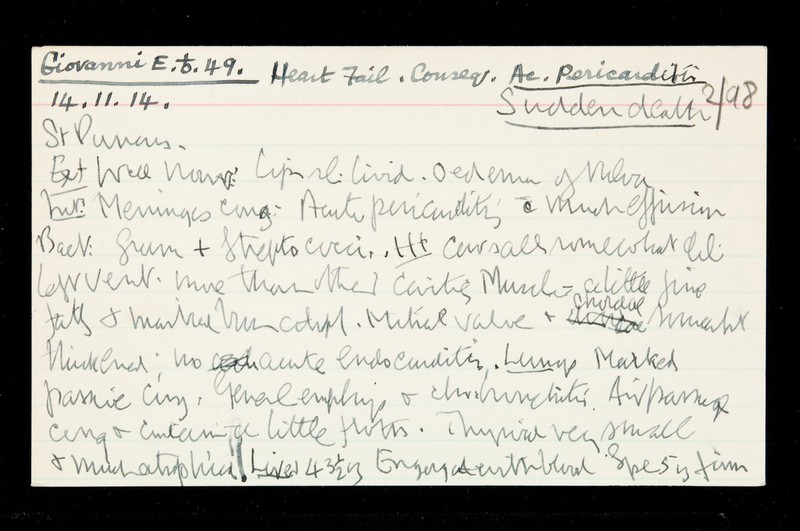 Giovanni E. 5. 49. Heart Fail. Conseq. Ac. Pericarditis
14.11.14. Sudden death 2/98
St Pancras.
Ext Well Lips sl. livid. Oedema of Vulva
Int: Meninges cong: Acute pericarditis c much effusion
Bact: Gram + Streptococci. Ht cavs all somewhat dil:
left vent. more than other cavities Muscle = a little fine
fatty & marked brown atroph. Mitral valve & chordae somewhat
thickened; no acute endocarditis. Lungs Marked
passive cong. General emphys & chr. bronchitis. Air passages
cong & contain a little froth. Thyroid very small
& much atrophied! Liver 43½ oz Engorged with blood. Spl 5 oz firm